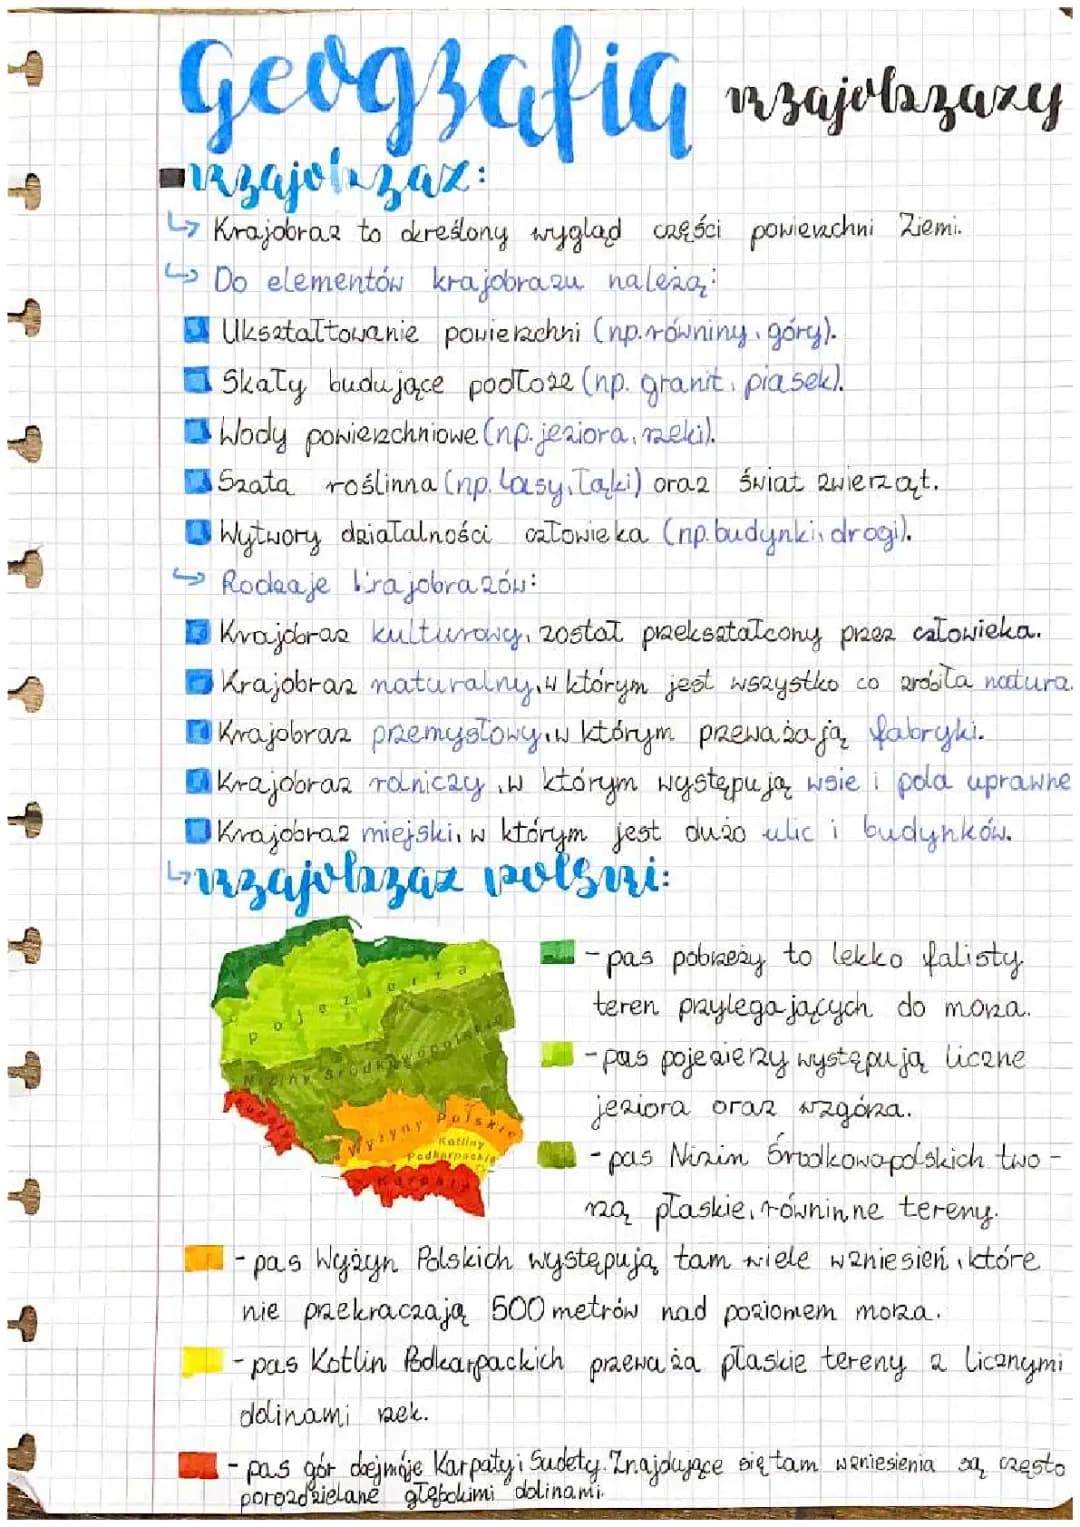 Geografia krajobrazy
krajobraz:
↳ Krajobraz to określony wygląd części powierzchni Ziemi.
↳ Do elementów krajobrazu należą:
Ukształtowanie powierzchni (np. równiny, góry).
Skały budujące podłoże (np. granit, piasek).
Wody powierzchniowe (np. jeziora, rzeki).
Szata roślinna (np. lasy, łąki) oraz świat zwierząt.
Wytwory działalności człowieka (np. budynki, drogi).
↳ Rodzaje krajobrazów:
Krajobraz kulturowy, został przekształcony przez człowieka.
Krajobraz naturalny, w którym jest wszystko co zrobiła natura.
Krajobraz przemysłowy, w którym przeważają fabryki.
Krajobraz rolniczy, w którym występują wsie i pola uprawne
Krajobraz miejski, w którym jest dużo ulic i budynków.
↳ krajobraz polski:
Pojezierza
Niziny Środkowopolskie
Sudety
Wyżyny Polskie
Kotliny
Podkarpackie
Karpaty
- pas pobrzeży to lekko falisty
teren przylegających do morza.
- pas pojezierzy występują liczne
jeziora oraz wzgórza.
- pas Nizin Środkowopolskich two-
rzą płaskie, równinne tereny.
- pas Wyżyn Polskich występują tam wiele wzniesień, które
nie przekraczają 500 metrów nad poziomem morza.
- pas Kotlin Podkarpackich przeważa płaskie tereny z licznymi
dolinami rzek.
- pas gór obejmóje Karpaty i Sudety. Znajdujące się tam wzniesienia są często
porozdzielane głębokimi dolinami.